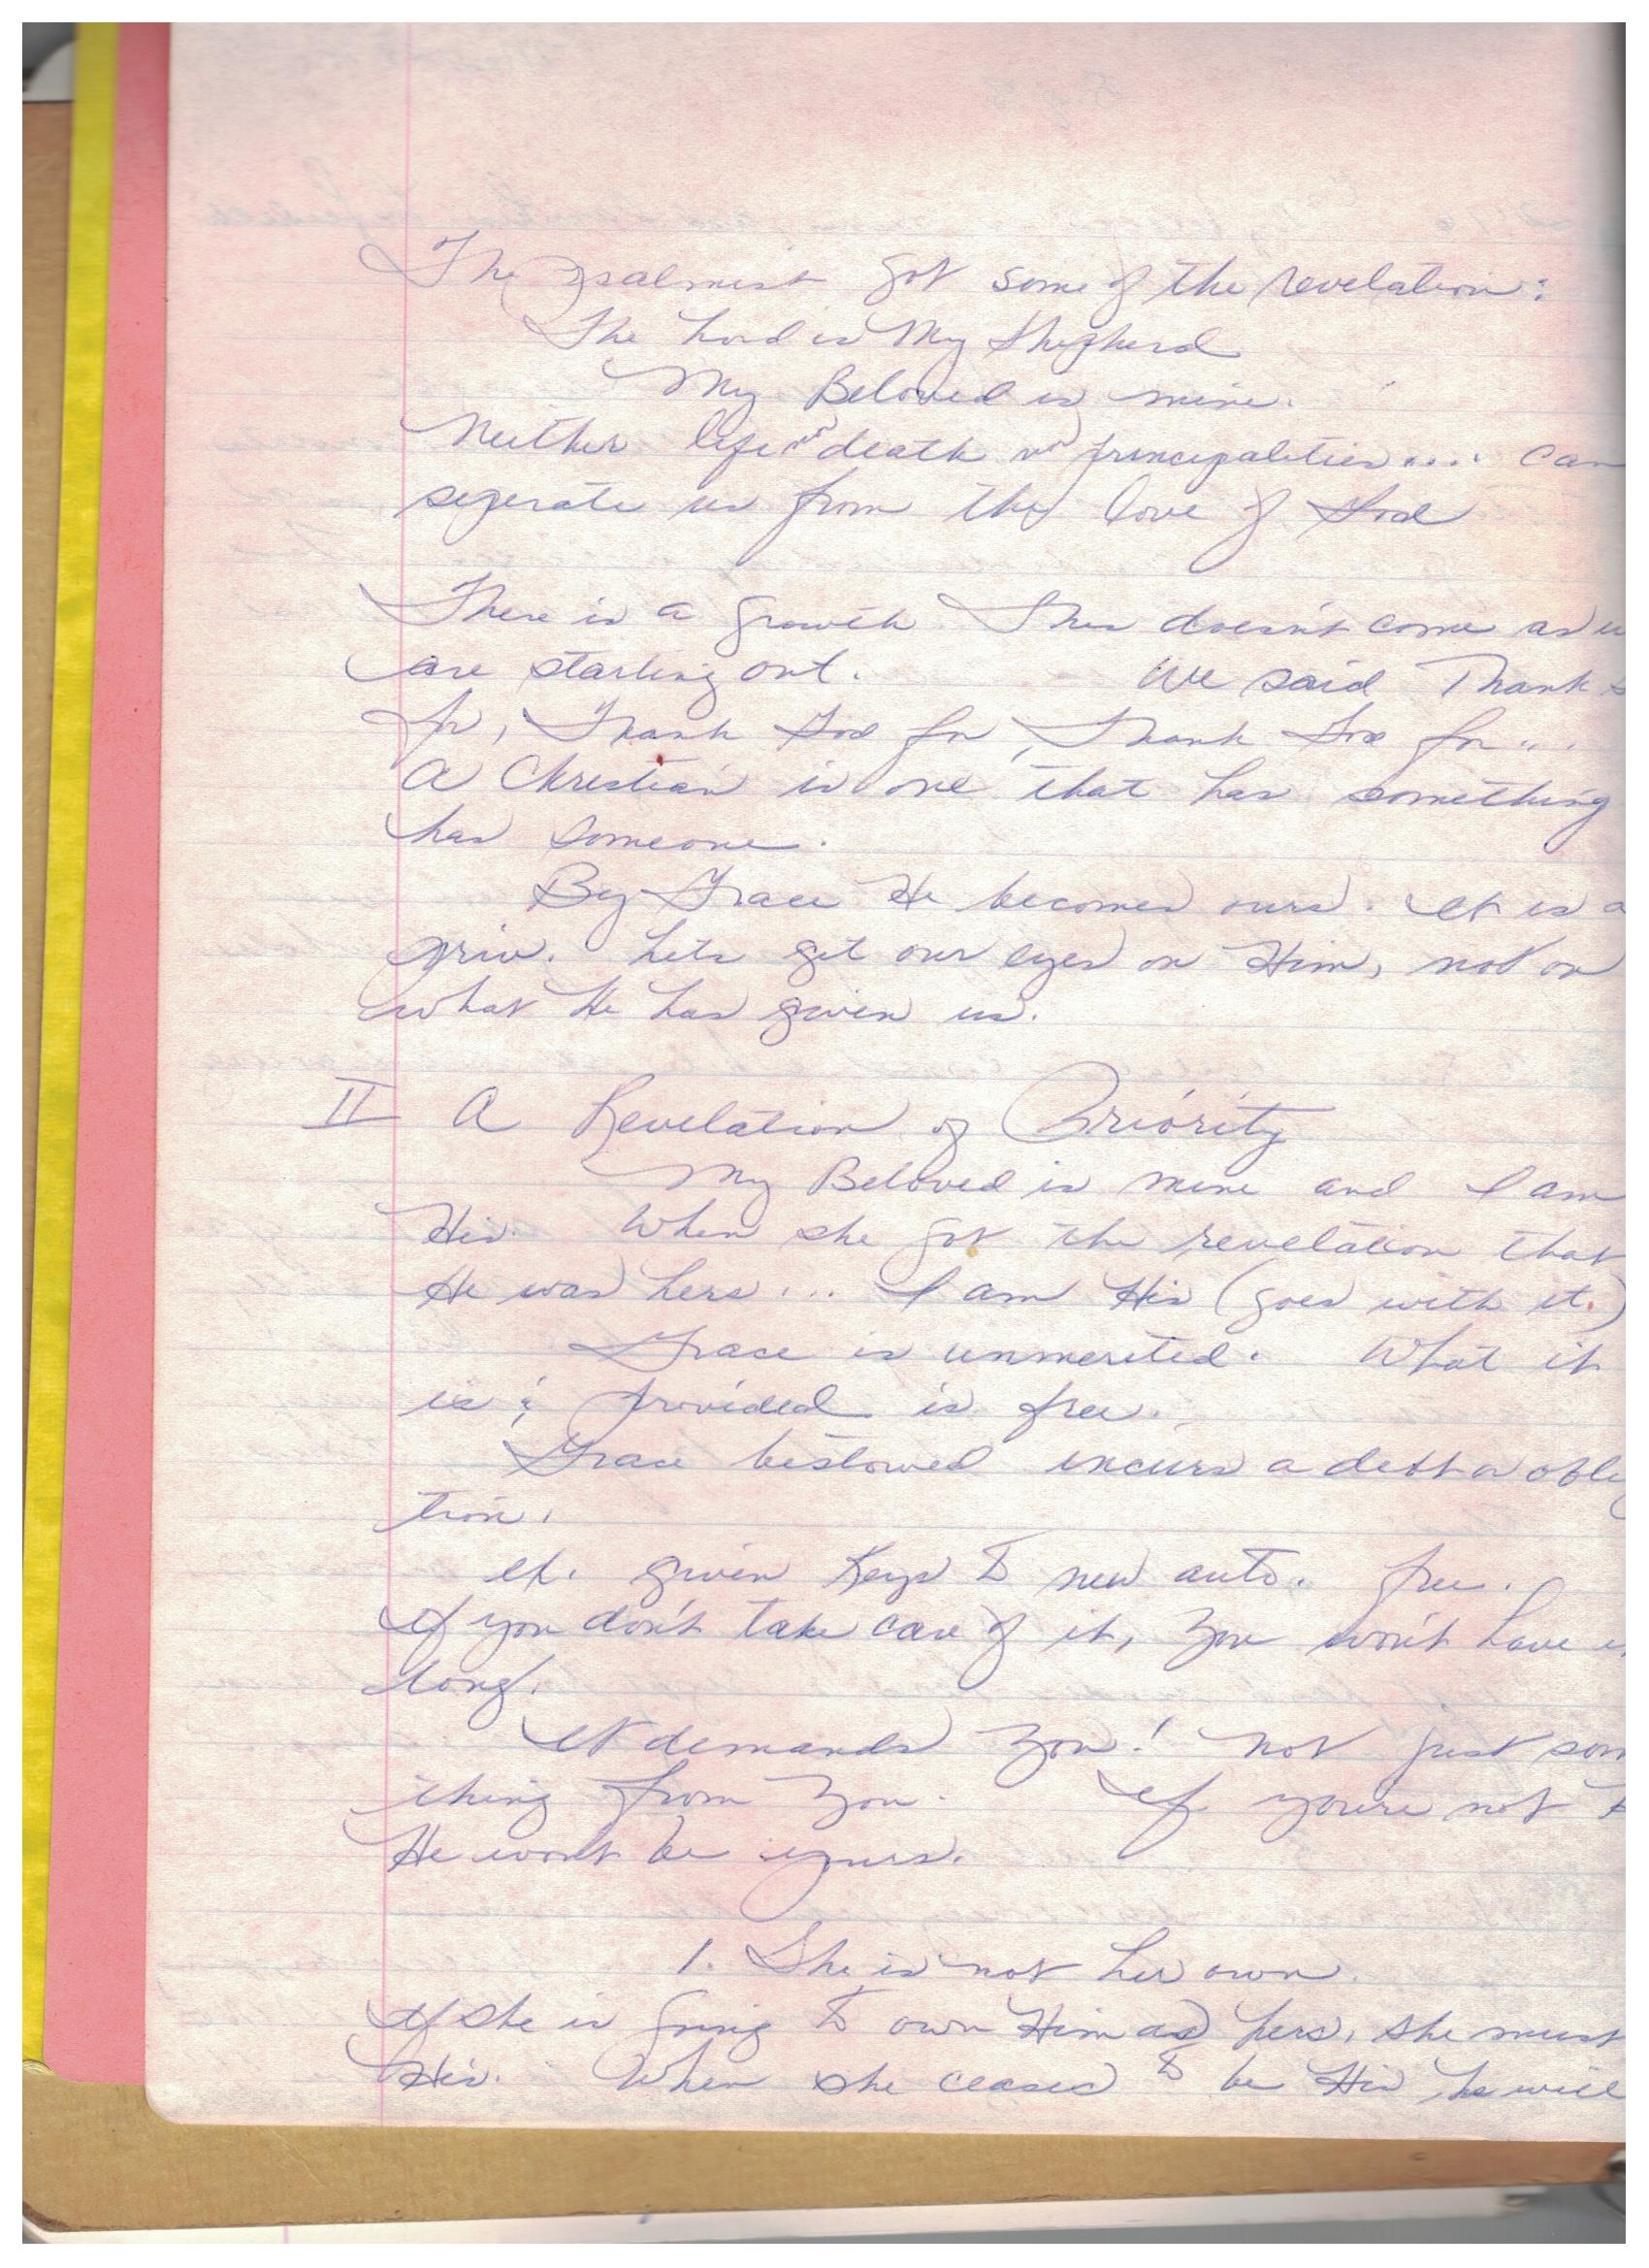 The psalmist got some of the revelation:
The Lord is My Shepherd
My Beloved is mine.
Neither life nor death nor principalities.... can
seperate us from the love of God
There is a growth This doesn't come as w
are starting out. We said Thank
for, Thank God for, Thank God for...
A Christian is one that has something
has someone.
By Grace He becomes ours. It is a
priv. Lets get our eyes on Him, not on
what He has given us.
II A Revelation of Priority
My Beloved is mine and I am
His. When she got the revelation that
He was hers... I am His (goes with it.)
Grace is unmerited. What it
is & provided is free.
Grace bestowed incurs a debt or oblig
tion.
ex. given Keys to new auto. free.
If you don't take care of it, you won't have i
long.
It demands you! not just som
thing from you. If you're not
He won't be yours.
1. She is not her own.
If she is going to own Him as hers, she must
His. When she ceases to be His he will